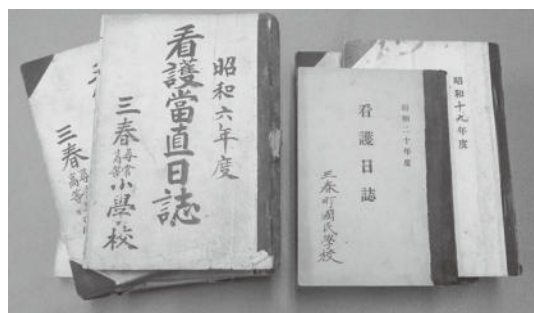 昭和六年度
看護當直日誌
三春尋常高等小學校
三春
高等
昭和二十年度
看護日誌
三春町國民學校
昭和十九年度